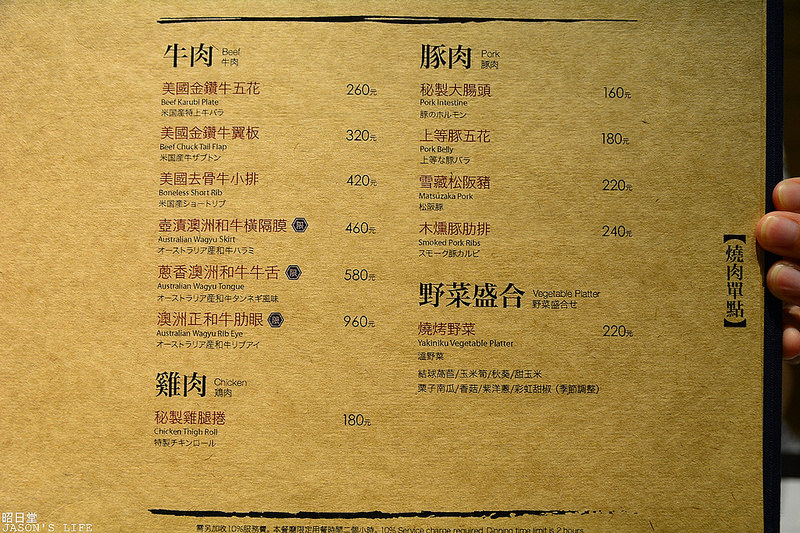 牛肉 Beef
牛肉
美國金鑽牛五花 260元
Beef Karubi Plate
米国産特上牛バラ
美國金鑽牛翼板 320元
Beef Chuck Tail Flap
米国産牛ザブトン
美國去骨牛小排 420元
Boneless Short Rib
米国産ショートリブ
壺漬澳洲和牛橫隔膜 限 460元
Australian Wagyu Skirt
オーストラリア産和牛ハラミ
蔥香澳洲和牛牛舌 限 580元
Australian Wagyu Tongue
オーストラリア産和牛タンネギ風味
澳洲正和牛肋眼 限 960元
Australian Wagyu Rib Eye
オーストラリア産和牛リブアイ
雞肉 Chicken
鶏肉
秘製雞腿捲 180元
Chicken Thigh Roll
特製チキンロール
豚肉 Pork
豚肉
秘製大腸頭 160元
Pork Intestine
豚のホルモン
上等豚五花 180元
Pork Belly
上等な豚バラ
雪藏松阪豬 220元
Matsuzaka Pork
松阪豚
木燻豚肋排 240元
Smoked Pork Ribs
スモーク豚カルビ
野菜盛合 Vegetable Platter
野菜盛合せ
燒烤野菜 220元
Yakiniku Vegetable Platter
温野菜
結球萵苣/玉米筍/秋葵/甜玉米
栗子南瓜/香菇/紫洋蔥/彩虹甜椒（季節調整）
【燒肉單點】
需另加收10%服務費。本餐廳限定用餐時間二個小時。10% Service charge required. Dinning time limit is 2 hours.
昭日堂
JASON'S LIFE